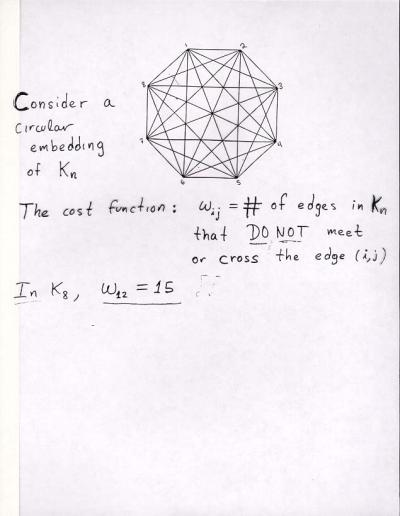 1 2
8 3
7 4
6 5
Consider a
circular
embedding
of Kn
The cost function: wij = # of edges in Kn
that DO NOT meet
or cross the edge (i,j)
In K8, w12 = 15